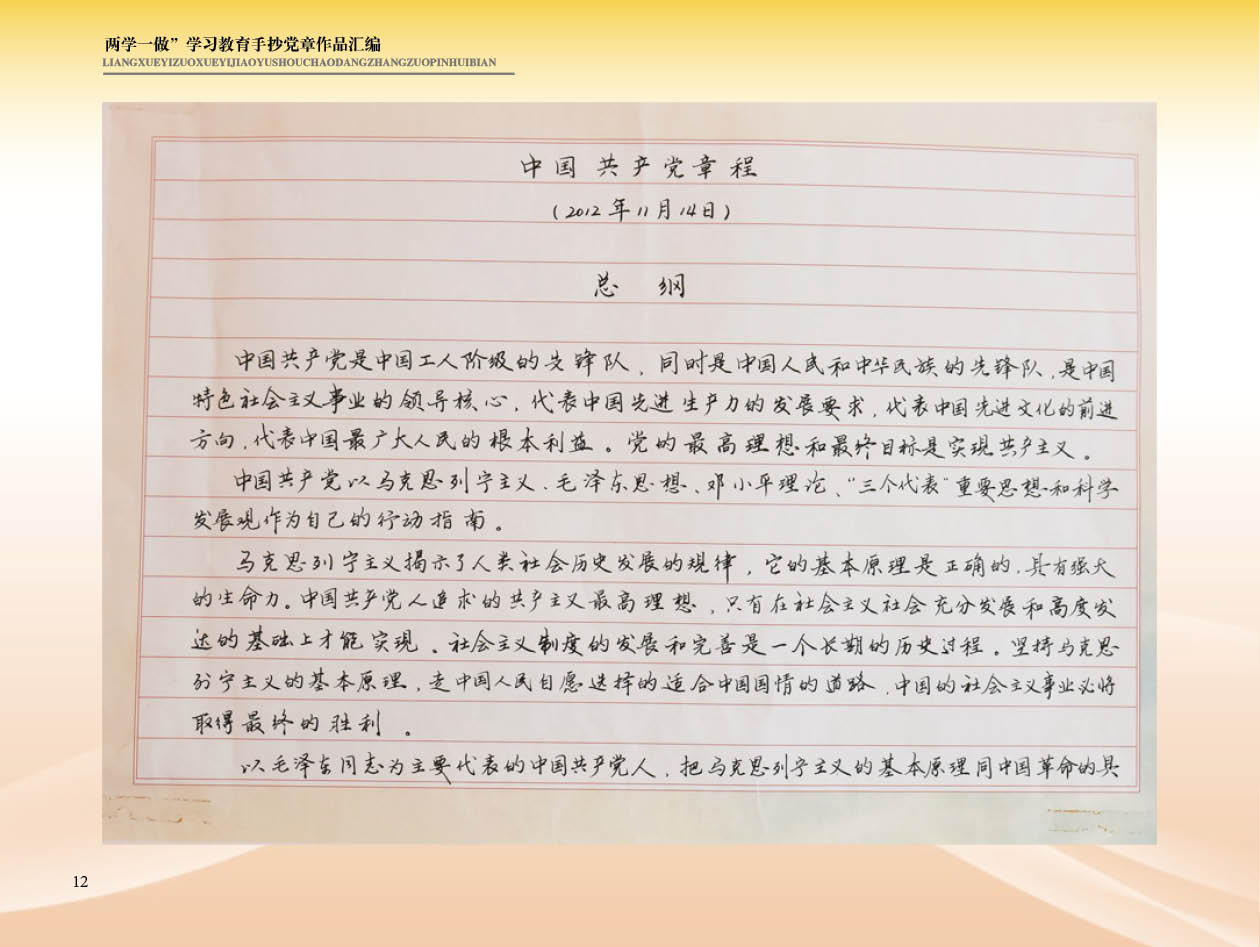 两学一做”学习教育手抄党章作品汇编
LIANGXUEYIZUOXUEYIJIAOYUSHOUCHAODANGZHANGZUOPINHUIBIAN
中国共产党章程
(2012年11月14日)
总 纲
中国共产党是中国工人阶级的先锋队，同时是中国人民和中华民族的先锋队，是中国
特色社会主义事业的领导核心，代表中国先进生产力的发展要求，代表中国先进文化的前进
方向，代表中国最广大人民的根本利益。党的最高理想和最终目标是实现共产主义。
中国共产党以马克思列宁主义、毛泽东思想、邓小平理论、“三个代表”重要思想和科学
发展观作为自己的行动指南。
马克思列宁主义揭示了人类社会历史发展的规律，它的基本原理是正确的，具有强大
的生命力。中国共产党人追求的共产主义最高理想，只有在社会主义社会充分发展和高度发
达的基础上才能实现。社会主义制度的发展和完善是一个长期的历史过程。坚持马克思
列宁主义的基本原理，走中国人民自愿选择的适合中国国情的道路，中国的社会主义事业必将
取得最终的胜利。
以毛泽东同志为主要代表的中国共产党人，把马克思列宁主义的基本原理同中国革命的具
12